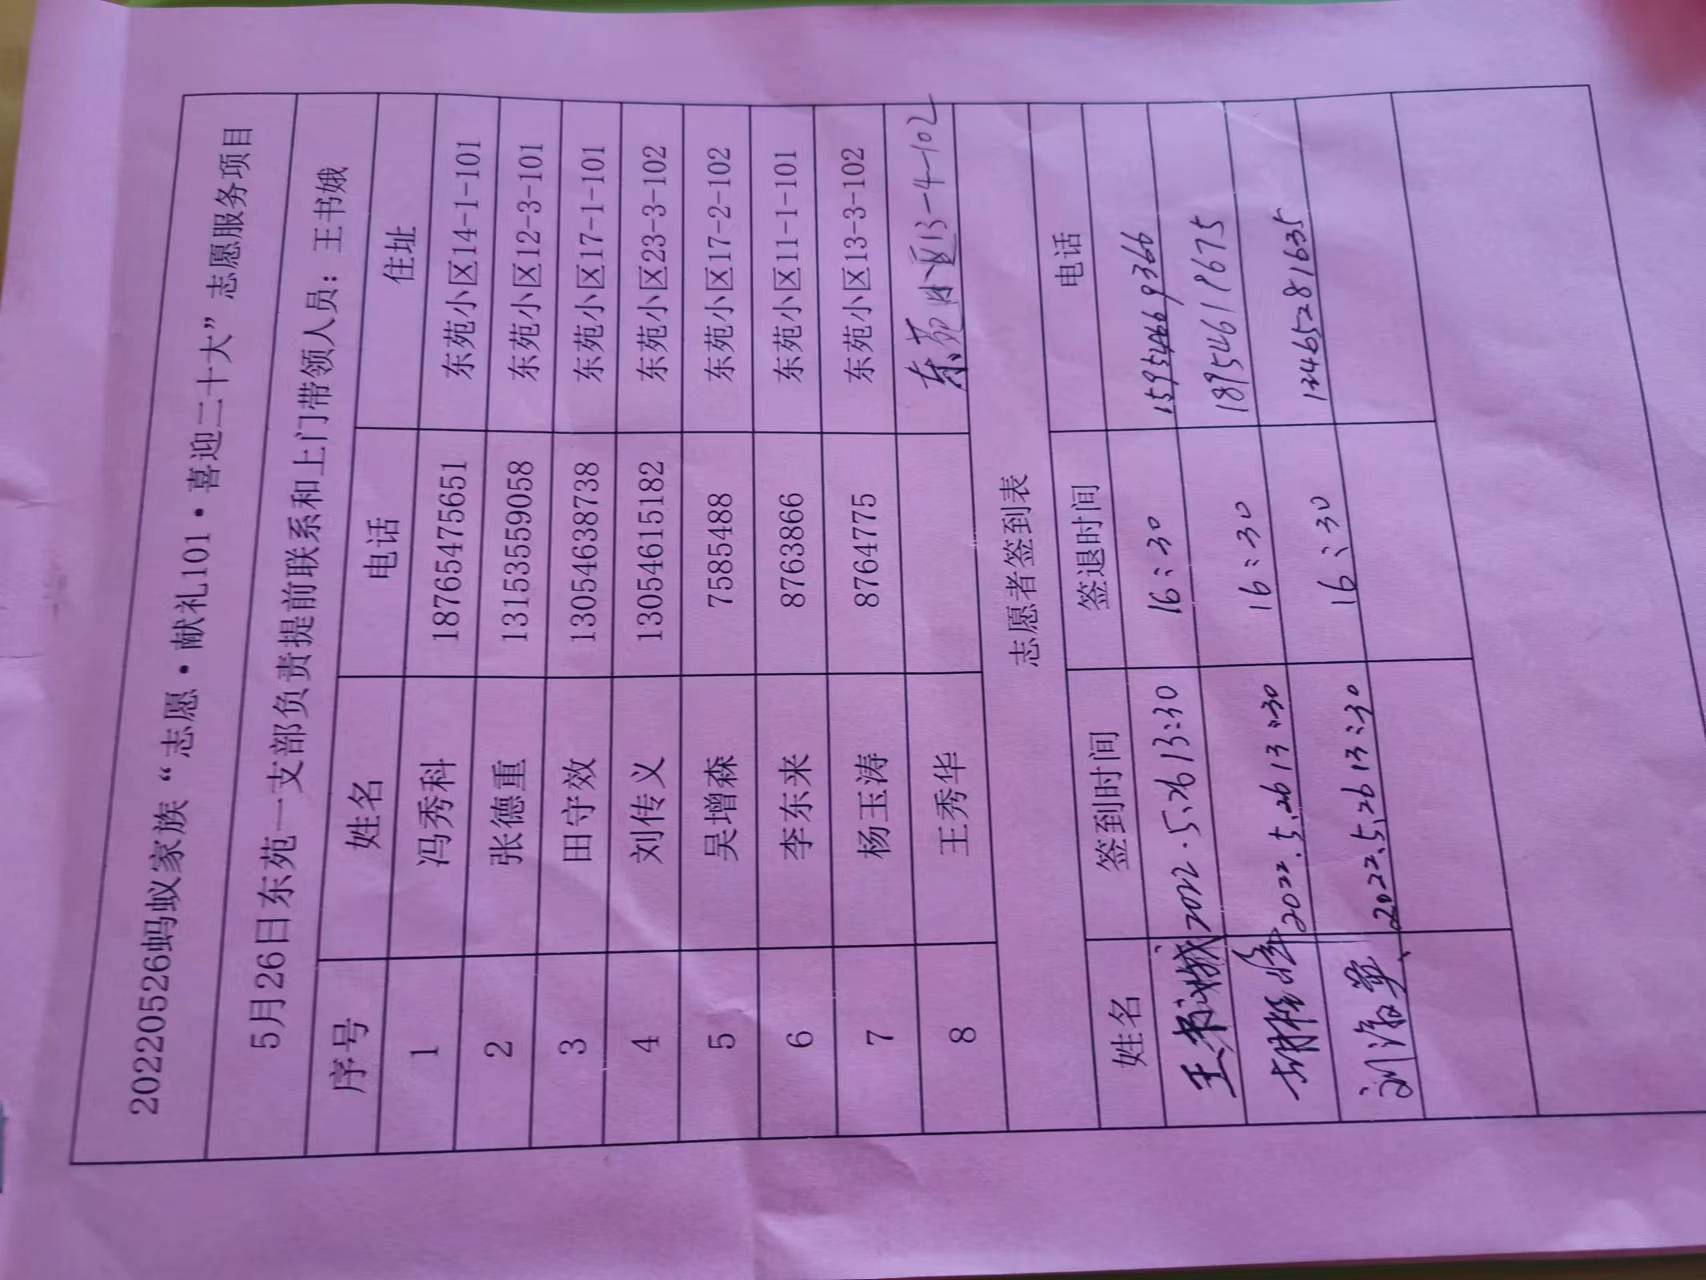 20220526蚂蚁家族“志愿·献礼101·喜迎二十大”志愿服务项目
5月26日东苑一支部负责提前联系和上门带领人员：王书娥
序号 姓名 电话 住址
1 冯秀科 18765475651 东苑小区14-1-101
2 张德重 13153559058 东苑小区12-3-101
3 田守效 13054638738 东苑小区17-1-101
4 刘传义 13054615182 东苑小区23-3-102
5 吴增森 7585488 东苑小区17-2-102
6 李东来 8763866 东苑小区11-1-101
7 杨玉涛 8764775 东苑小区13-3-102
8 王秀华 东苑小区13-4-102
志愿者签到表
姓名 签到时间 签退时间 电话
王书娥 2022.5.26 13:30 16:30 15954669366
2022.5.26 13:30 16:30 18954618675
2022.5.26 13:30 16:30